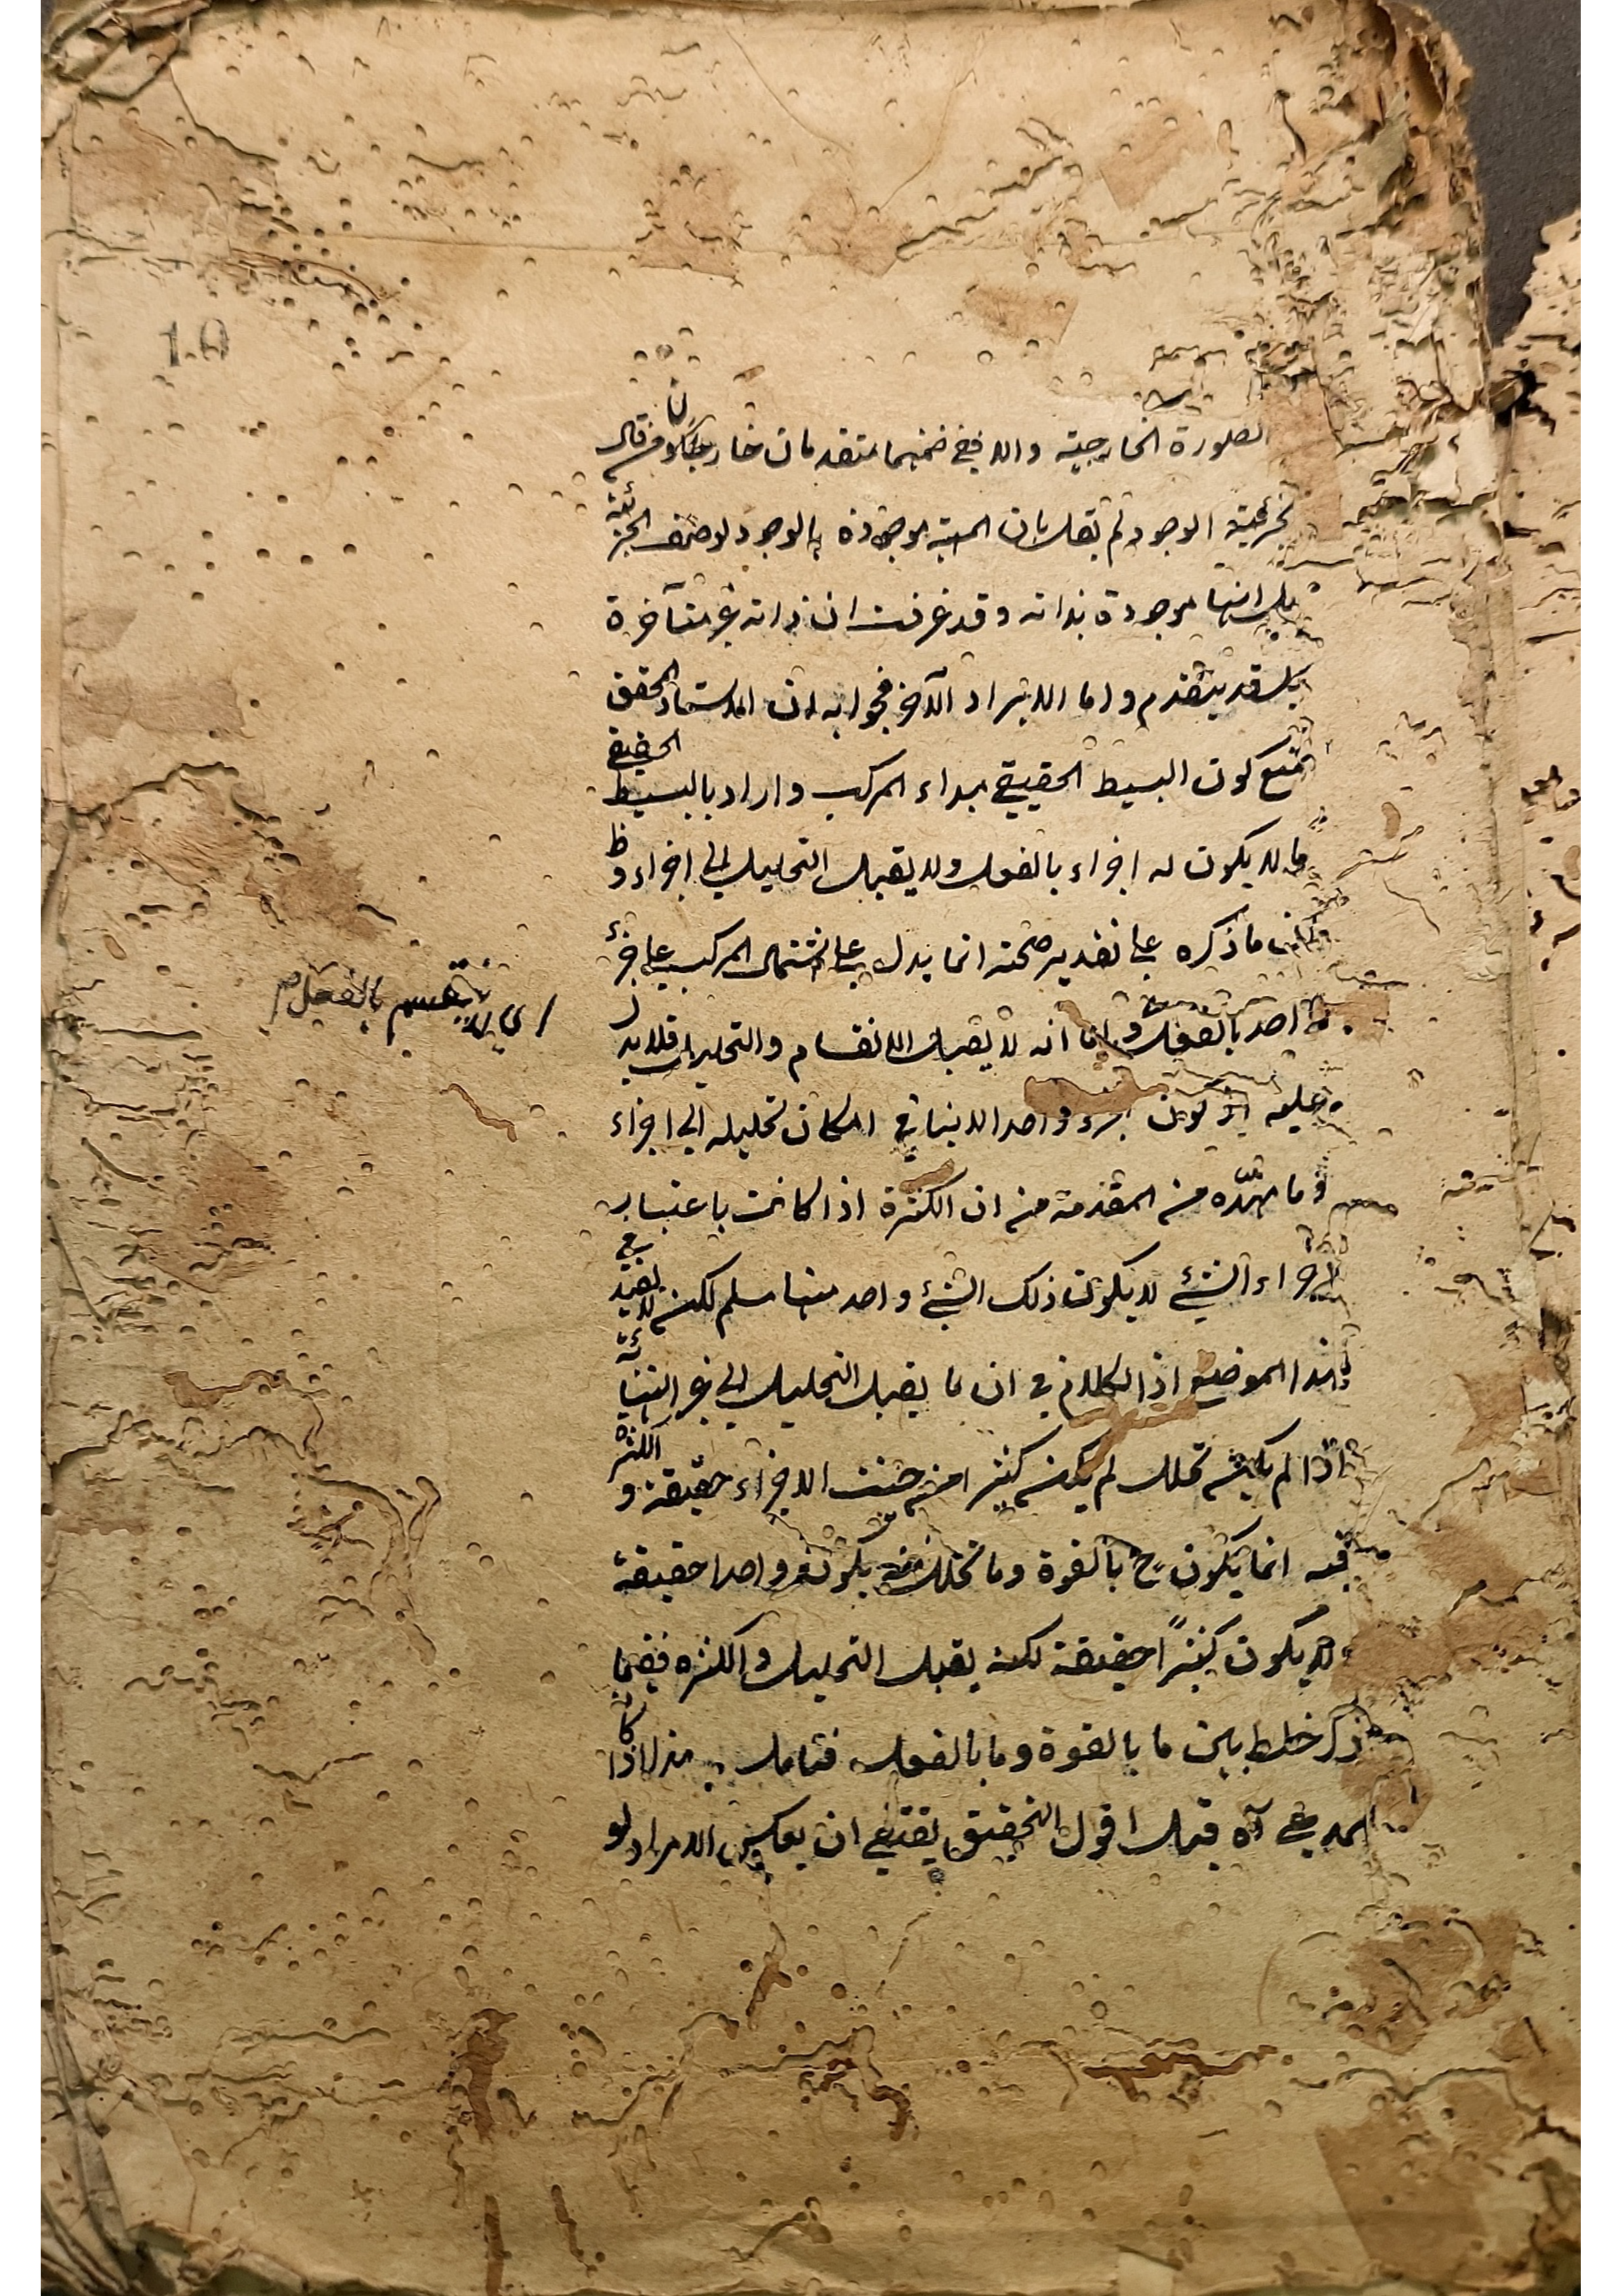 ١٠٥
الصورة الخارجية واللا فيفى ضمنهما متقدمان خارجا ومن قال
بجزئية الوجود لم يقل بان المهية موجودة بالوجود لوصف الجزئية
بل انها موجودة بذاته وقد عرفت ان ذاته غير متآخرة
بل قد يتقدم واما الايراد الآخر فجوابه ان الاستاد المحقق
منع كون البسيط الحقيقي مبداء المركب واراد بالبسيط الحقيقي
ما لا يكون له اجزاء بالفعل ولا يقبل التحليل الى اجزاء وظ
ان ما ذكره على تقدير صحته انما يدل على اشتمال المركب على جزء
واحد بالفعل واما انه لا يقبل الانقسام والتحليل فلا يدل
اى لا ينقسم بالفعل
عليه اذ كون جزء واحد لا ينافي امكان تحليله الى اجزاء
وما مهّده من المقدمة من ان الكثرة اذا كانت باعتبار
اجزاء الشيء لا يكون ذلك الشيء واحد منها مسلم لكن لا يفيد في
هذا الموضع اذ الكلام في ان ما يقبل التحليل الى غير النهاية
اذا لم يكن تحلل لم يكن كثيرا من حيث الاجزاء حقيقة والكثرة
فيه انما يكون ح بالقوة وما تحلل منه يكون واحدا حقيقة
لا يكون كثيرًا حقيقة لكنه يقبل التحليل والكثرة ففيما
ذكر خلط بين ما بالقوة وما بالفعل فتامل هذا اذا كان
المدعى آه قيل اقول التحقيق يقتضي ان يعكس الامر اد لو